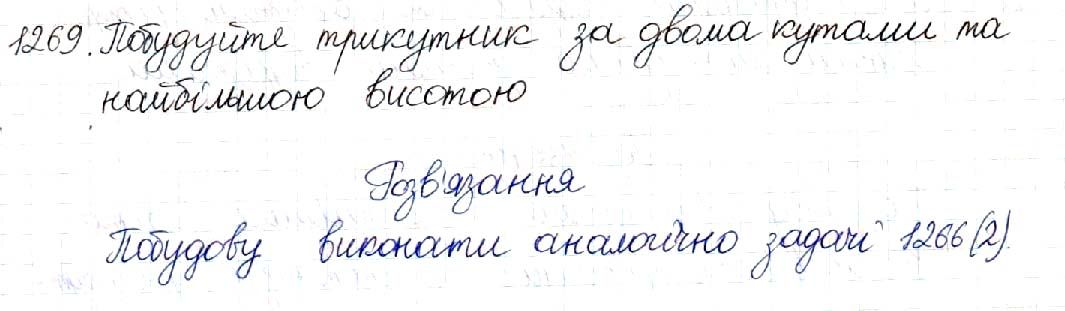 1269. Побудуйте трикутник за двома кутами та
найбільшою висотою
Розв'язання
Побудову виконати аналогічно задачі 1266(2).